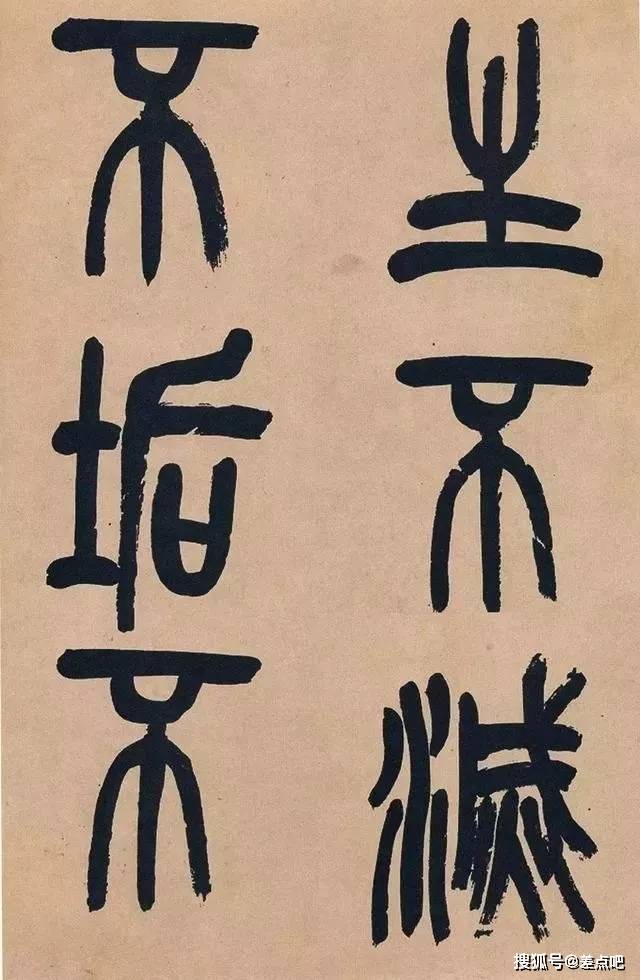 生不滅
不垢不
搜狐号@差点吧